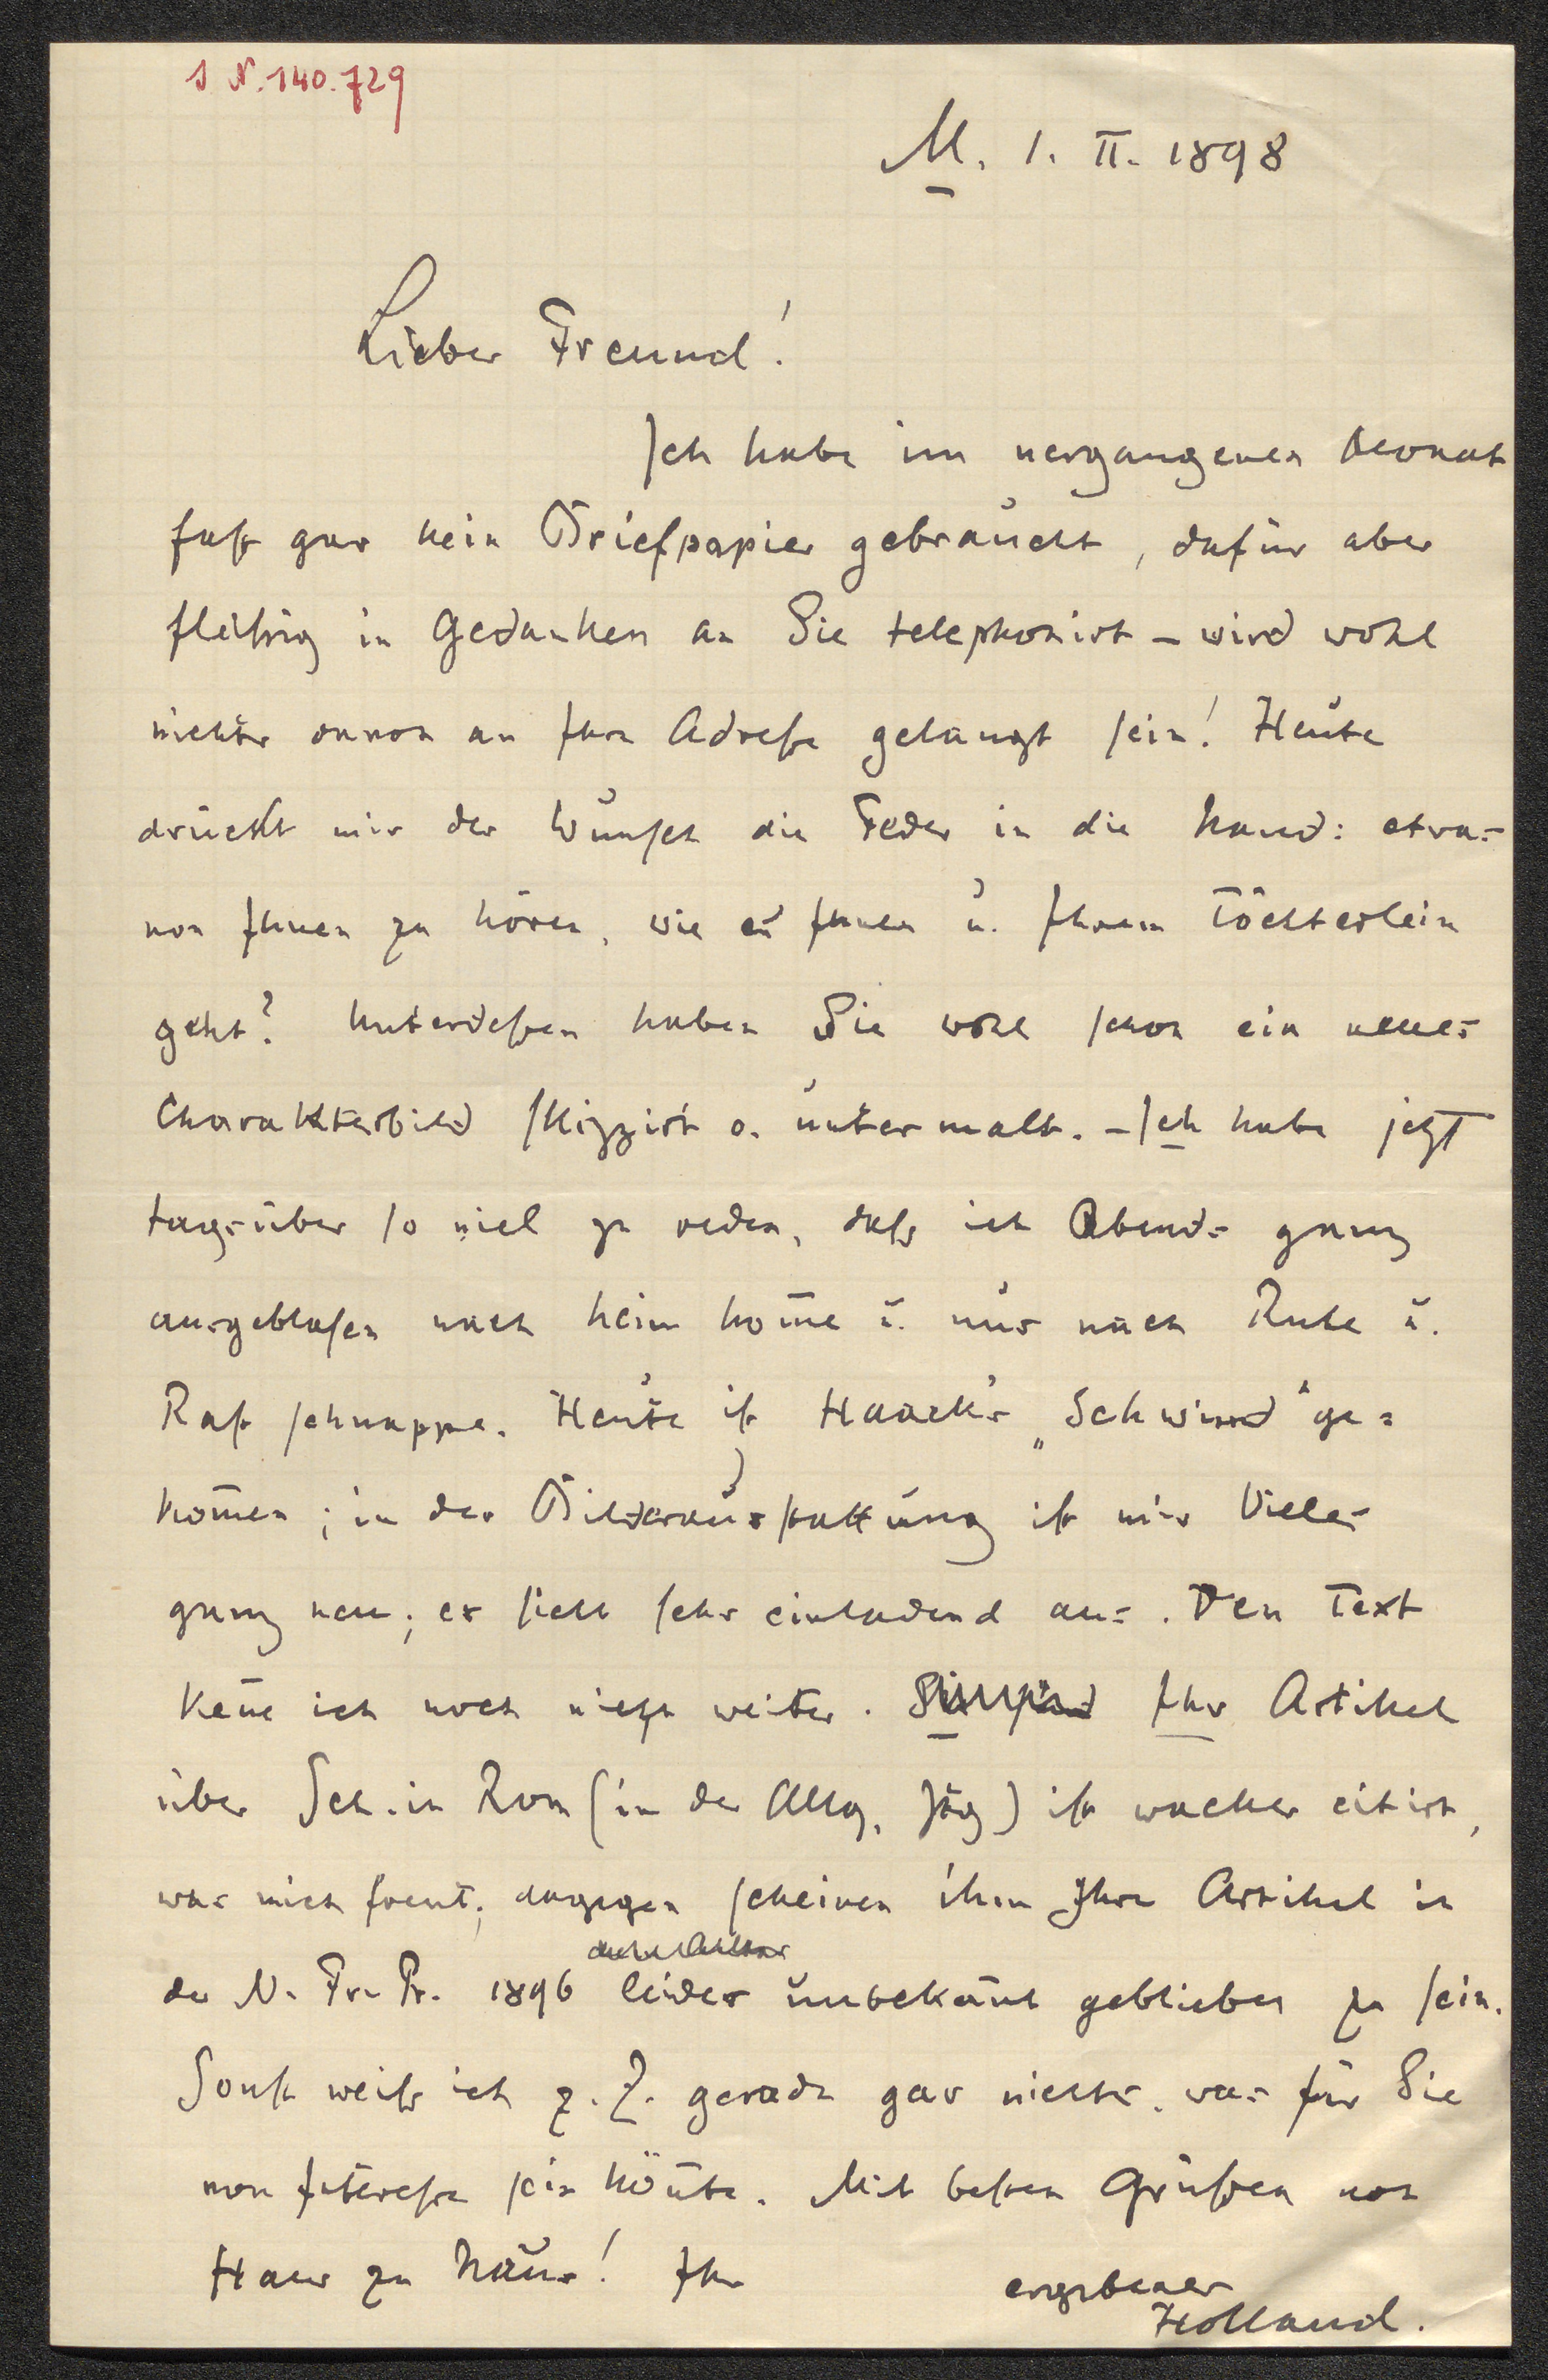 J. N. 140.729
M. 1. II. 1898
Lieber Freund!
Ich habe im vergangenen Monat
fast gar kein Briefpapier gebraucht, dafür aber
fleißig in Gedanken an Sie telephonirt – wird wohl
nichts davon an Ihre Adreße gelangt sein! Heute
drückt mir der Wunsch die Feder in die Hand: etwas
von Ihnen zu hören, wie es Ihnen u. Ihrem Töchterlein
geht? Unterdeßen haben Sie wohl schon ein neues
Charakterbild skizzirt o. untermalt. – Ich habe jetzt
tagsüber so viel zu reden, daß ich Abends ganz
ausgeblasen nach heim kom̄e u. nur nach Ruhe u.
Rast schnappe. Heute ist Haack's „Schwind“ ge=
kom̄en; in der Bilderausstattung ist mir Vieles
ganz neu; es sieht sehr einladend aus. Den Text
ken̄e ich noch nicht weiter. Ihr Artikel
über Sch. in Rom (in der Allg. Ztg) ist wacker citirt,
was mich freut; dagegen scheinen ihm Ihre Artikel in
der N. Fr. Pr. 1896 leider unbekan̄t geblieben zu sein.
Sonst weiß ich z. Z. gerade gar nichts, was für Sie
von Intereße sein kön̄te. Mit besten Grüßen von
Haus zu Haus! Ihr
ergebener
Holland.